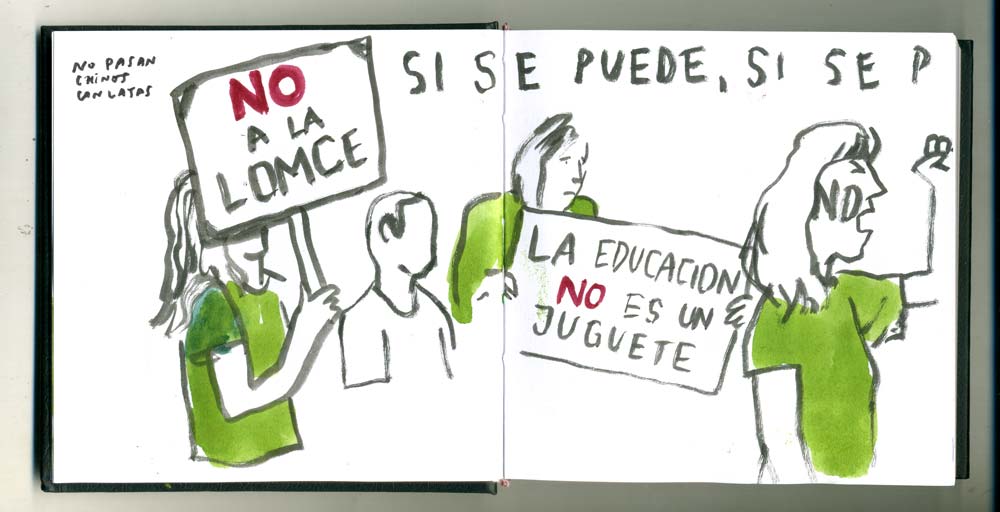 NO PASAN
CHINOS
CON LATAS
NO
A LA
LOMCE
SI SE PUEDE, SI SE P
LA EDUCACION
NO ES UN
JUGUETE
NO